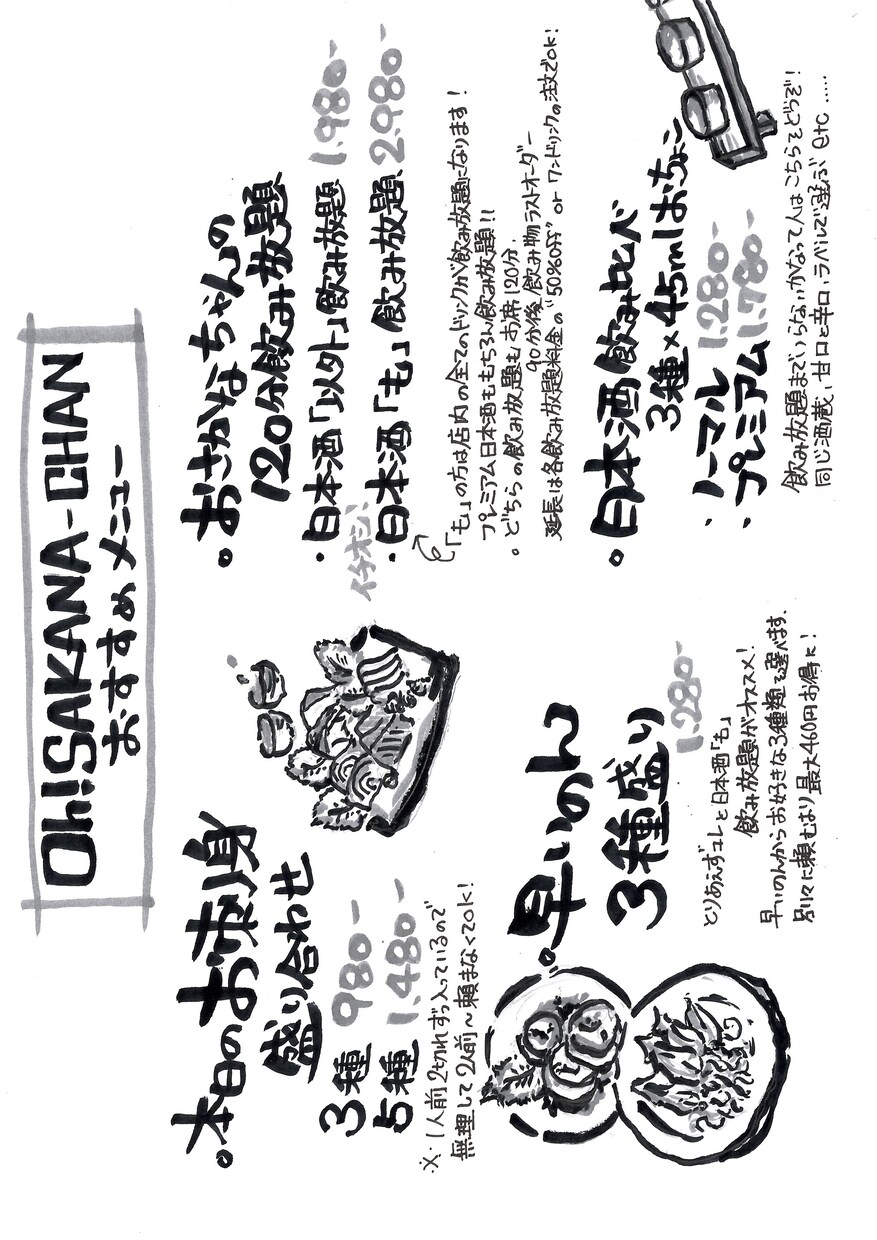 Oh!SAKANA-CHAN
おすすめメニュー
・本日のお刺身
盛り合わせ
3種 980-
5種 1.480-
※・1人前2切れずつ入っているので
無理して2人前〜頼まなくてOK!
・早いのん
3種盛り
1.280-
とりあえずコレと日本酒「も」
飲み放題がオススメ!
早いのんからお好きな3種類を選べます。
別々に頼むより最大460円お得に!
・おさかなちゃんの
120分飲み放題
・日本酒「以外」飲み放題 1.980-
イチオシ!
・日本酒「も」飲み放題 2.980-
「も」の方は店内の全てのドリンクが飲み放題になります!
プレミアム日本酒ももちろん飲み放題!!
・どちらの飲み放題もお席120分、
90分後飲み物ラストオーダー
延長は各飲み放題料金の"50%OFF" or ワンドリンクの注文でOK!
・日本酒飲み比べ
3種×45mlおちょこ
・ノーマル 1.280-
・プレミアム 1.780-
飲み放題までいらないかなって人はこちらをどうぞ!
同じ酒蔵、甘口と辛口、ラベルで選ぶ etc……